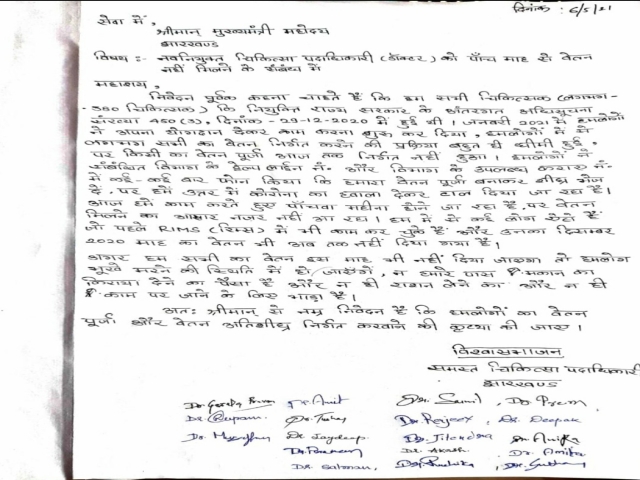 दिनांक : 6/5/21
सेवा में,
श्रीमान् मुख्यमंत्री महोदय
झारखण्ड
विषय :- नवनियुक्त चिकित्सा पदाधिकारी (डॉक्टर) को पाँच माह से वेतन
नहीं मिलने के संबंध में
महाशय,
निवेदन पूर्वक कहना चाहते हैं कि हम सभी चिकित्सक (लगभग-
380 चिकित्सक) कि नियुक्ति राज्य सरकार के अंतरगत अधिसूचना
संख्या 450(3), दिनांक - 29-12-2020 में हुई थी। जनवरी 2021 में हमलोगों
ने अपना योगदान देकर काम करना शुरू कर दिया, हमलोगों में से
लगभग सभी का वेतन निर्गत करने की प्रक्रिया बहुत ही धीमी हुई,
पर किसी का वेतन पूर्जा आज तक निर्गत नहीं हुआ। हमलोगों ने
संबंधित विभाग के हेल्प लाईन नं. और विभाग के उपलब्ध कराए नं-
में कई-कई बार फोन किया कि हमारा वेतन पूर्जा बनाकर शीघ्र भेज
दें, पर हमें उत्तर में कोरोना का हवाला देकर टाल दिया जा रहा है।
आज हमें काम करते हुए पाँचवा महीना होने जा रहा है, पर वेतन
मिलने का आसार नजर नहीं आ रहा। हम में से कई लोग ऐसे हैं
जो पहले RIMS (रिम्स) में भी काम कर चुके हैं और उनका दिसम्बर
2020 माह का वेतन भी अब तक नहीं दिया गया है।
अगर हम सभी का वेतन इस माह भी नहीं दिया जाएगा तो हमलोग
भूखे मरने की स्थिति में हो जाएँगे, न हमारे पास मकान का
किराया देने का पैसा है और न ही राशन लेने का और न ही
काम पर जाने के लिए भाड़ा है।
अतः श्रीमान् से नम्र निवेदन है कि हमलोगों का वेतन
पूर्जा और वेतन अतिशीघ्र निर्गत करवाने की कृप्या की जाए।
विश्वासभाजन
समस्त चिकित्सा पदाधिकारी
झारखण्ड
Amit Dr. Sunil, Dr. Prem
Dr. Anupam Dr. Tushar Dr. Rajeev, Dr. Deepak
Dr. Jaydeep Dr. Jitendra Dr. Anita
Dr. Poonam Dr. Akash Dr. Amita
Dr. Salman,